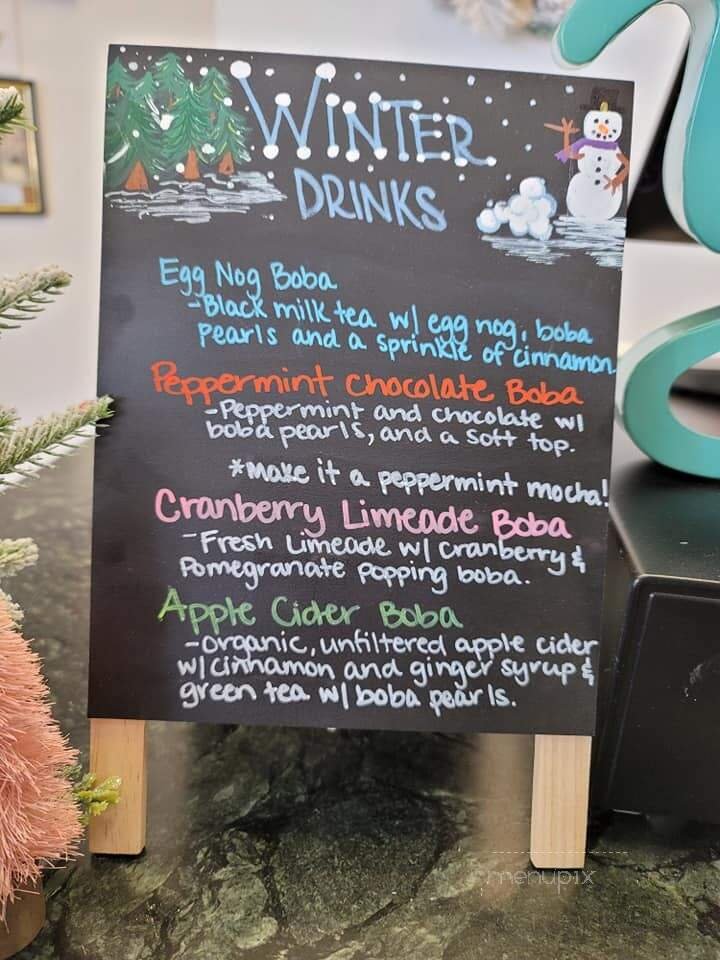 WINTER
DRINKS
Egg Nog Boba
-Black milk tea w/ egg nog, boba
pearls and a sprinkle of cinnamon.
Peppermint chocolate Boba
-Peppermint and chocolate w/
boba pearls, and a soft top.
*make it a peppermint mocha!
Cranberry Limeade Boba
-Fresh Limeade w/ cranberry &
Pomegranate popping boba.
Apple Cider Boba
-organic, unfiltered apple cider
w/ cinnamon and ginger syrup &
green tea w/ boba pearls.
menupix